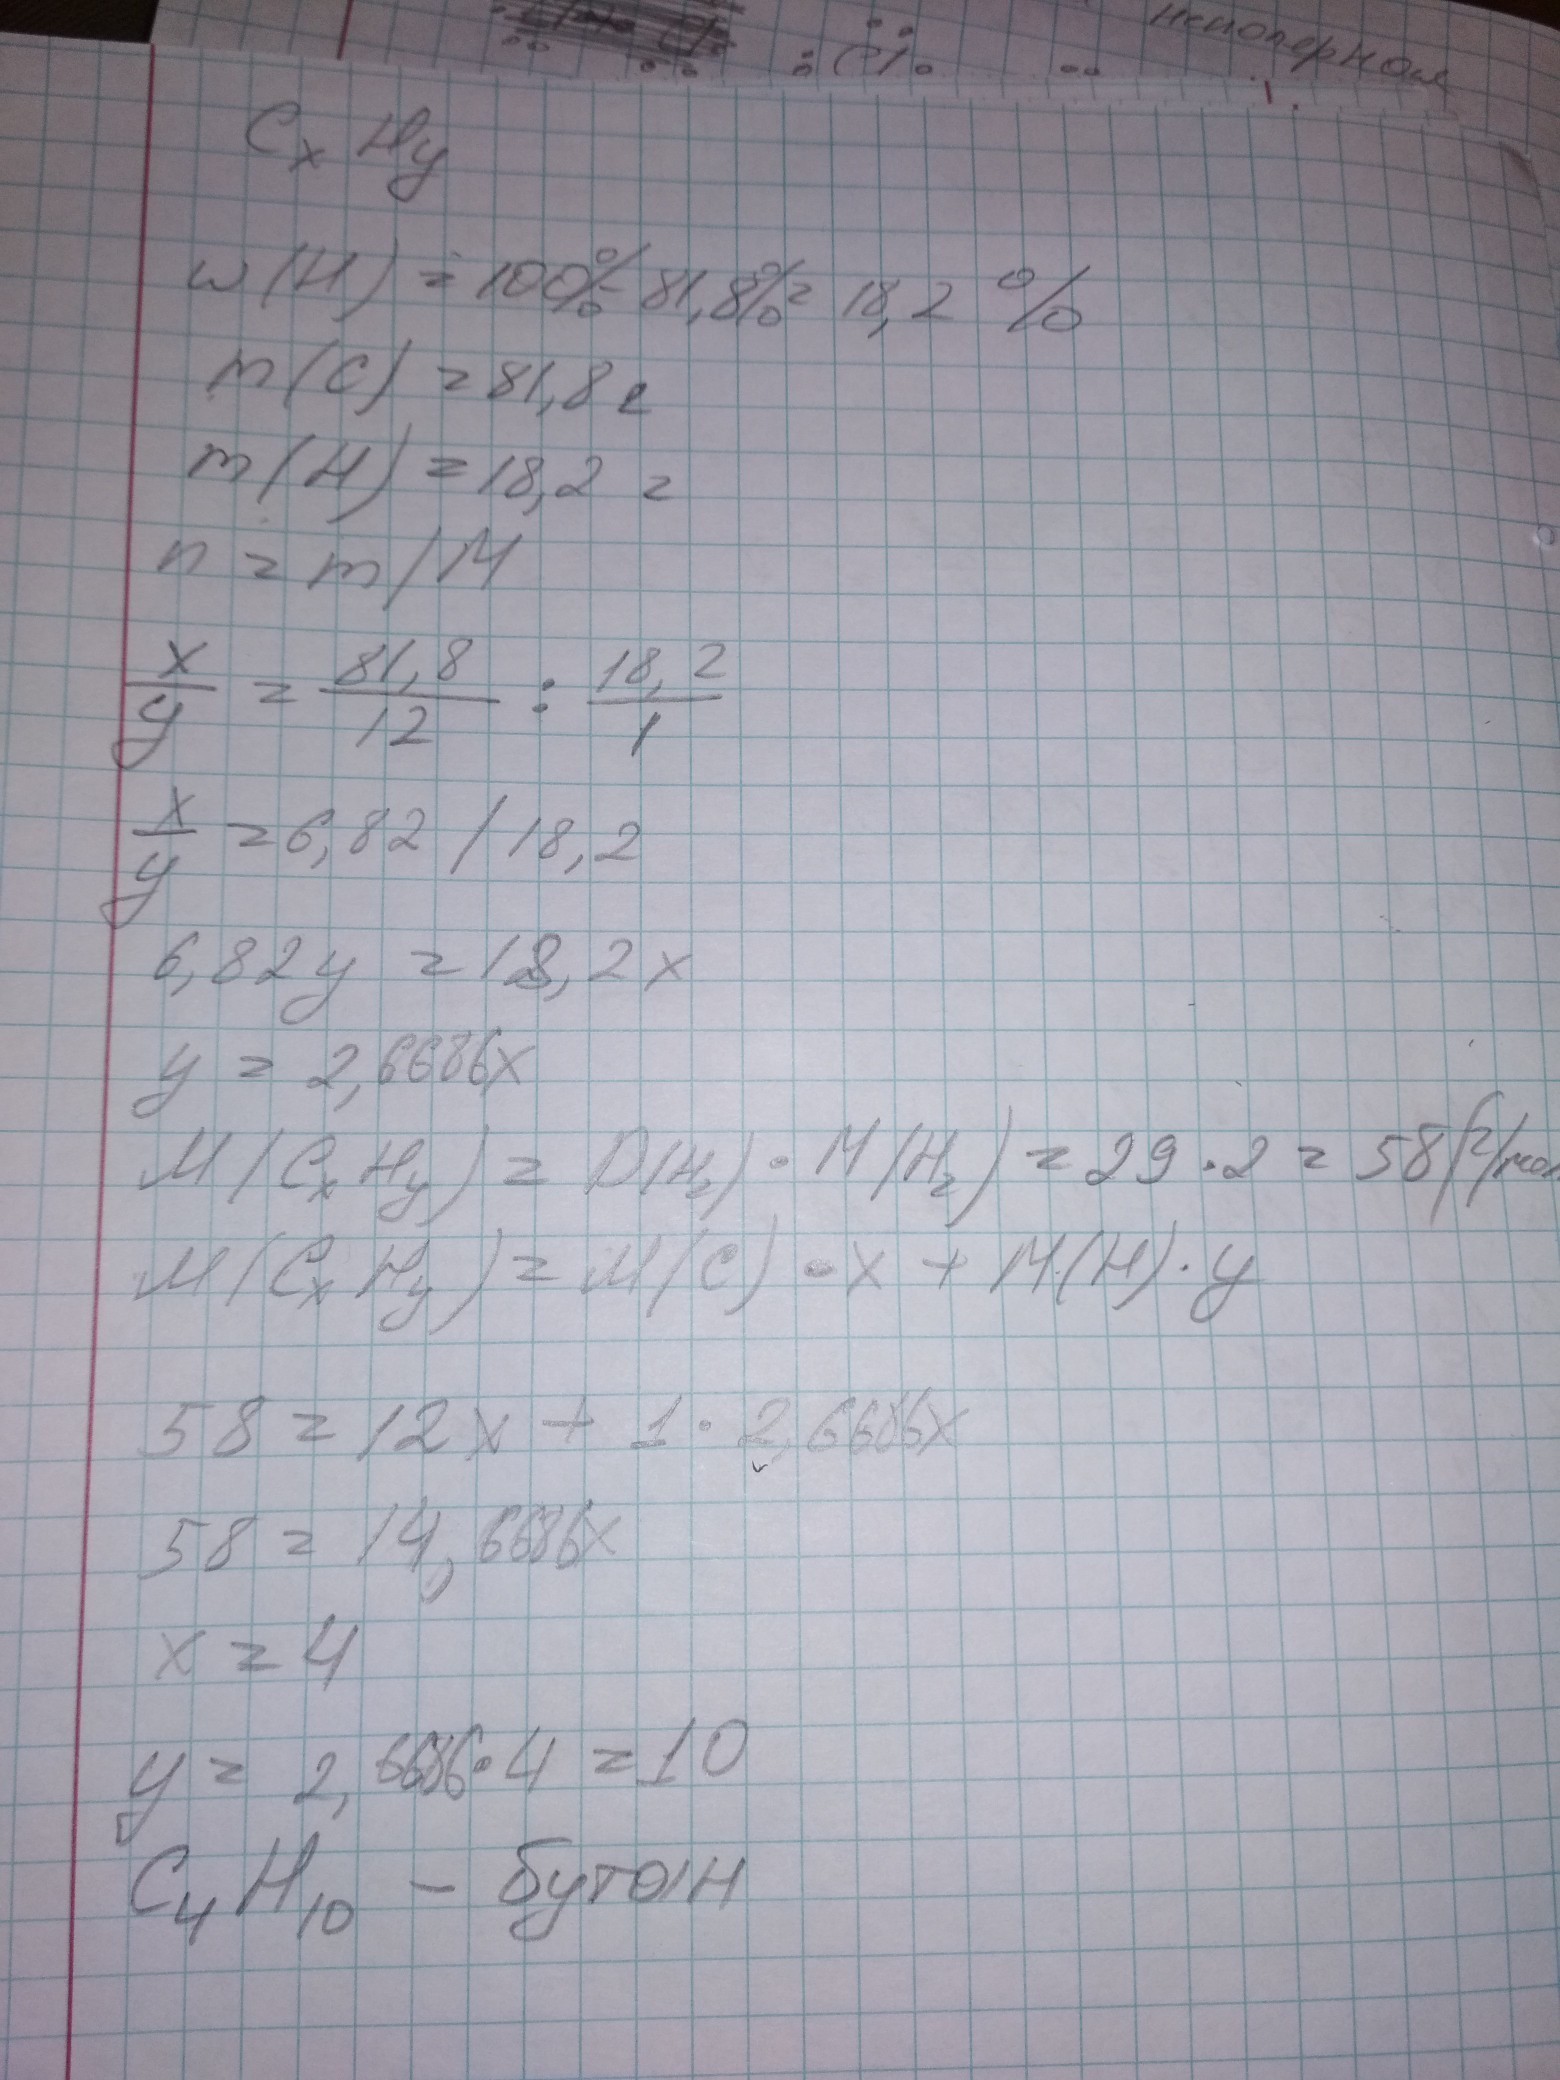 неполярная
Cl
CxHy
w(H) = 100% - 81,8% = 18,2 %
m(C) = 81,8 г
m(H) = 18,2 г
n = m/M
x/y = 81,8/12 : 18,2/1
x/y = 6,82 / 18,2
6,82y = 18,2x
y = 2,6686x
M(CxHy) = D(H2) · M(H2) = 29 · 2 = 58 (г/мол
M(CxHy) = M(C) · x + M(H) · y
58 = 12x + 1 · 2,6686x
58 = 14,6686x
x = 4
y = 2,6686 · 4 = 10
C4H10 - бутан